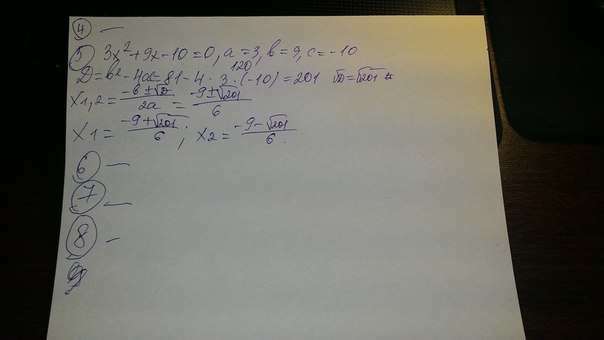 4 —
5, 3x²+9x-10=0, a=3, b=9, c=-10
120
D=b²-4ac=81-4·3·(-10)=201 √D=√201
x1,2=(-b±√D)/2a=(-9±√201)/6
x1=(-9+√201)/6; x2=(-9-√201)/6.
6 —
7 —
8 —